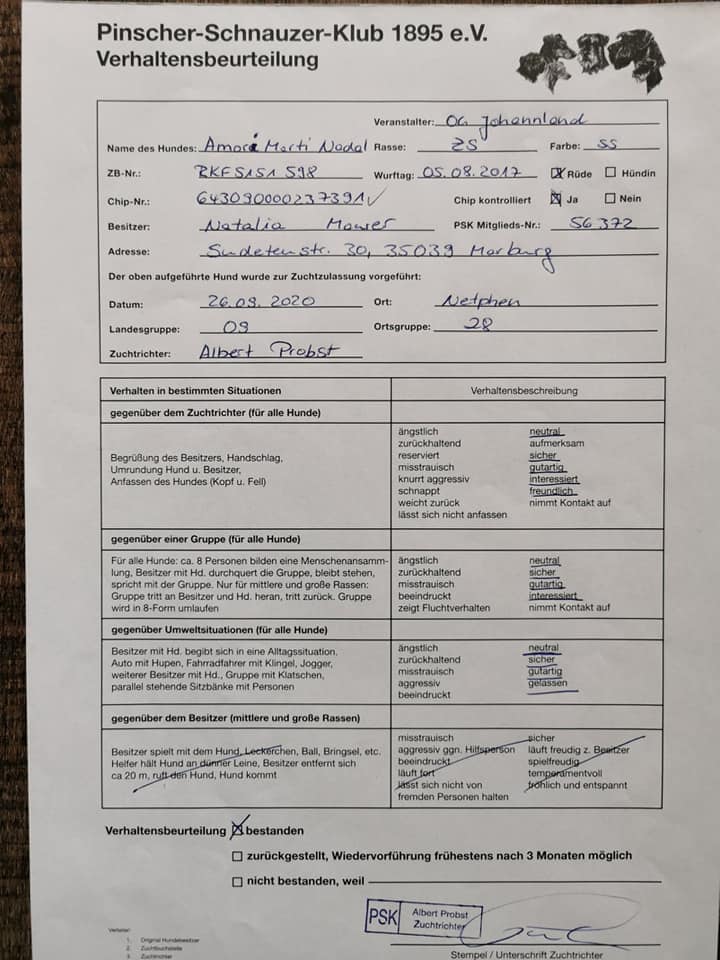 Pinscher-Schnauzer-Klub 1895 e.V.
Verhaltensbeurteilung
Veranstalter: OG Johannland
Name des Hundes: Amore Marti Nodal Rasse: ZS Farbe: SS
ZB-Nr.: RKF 5151 598 Wurftag: 05.08.2017 ☒ Rüde ☐ Hündin
Chip-Nr.: 643090000237391 ✓ Chip kontrolliert ☒ Ja ☐ Nein
Besitzer: Natalia PSK Mitglieds-Nr.: 56 372
Adresse: Sudetenstr. 30, 35039 Marburg
Der oben aufgeführte Hund wurde zur Zuchtzulassung vorgeführt:
Datum: 26.09.2020 Ort: Netphen
Landesgruppe: 09 Ortsgruppe: 28
Zuchtrichter: Albert Probst
Verhalten in bestimmten Situationen Verhaltensbeschreibung
gegenüber dem Zuchtrichter (für alle Hunde)
Begrüßung des Besitzers, Handschlag,
Umrundung Hund u. Besitzer,
Anfassen des Hundes (Kopf u. Fell)
ängstlich neutral
zurückhaltend aufmerksam
reserviert sicher
misstrauisch gutartig
knurrt aggressiv interessiert
schnappt freundlich
weicht zurück nimmt Kontakt auf
lässt sich nicht anfassen
gegenüber einer Gruppe (für alle Hunde)
Für alle Hunde: ca. 8 Personen bilden eine Menschenansamm-
lung, Besitzer mit Hd. durchquert die Gruppe, bleibt stehen,
spricht mit der Gruppe. Nur für mittlere und große Rassen:
Gruppe tritt an Besitzer und Hd. heran, tritt zurück. Gruppe
wird in 8-Form umlaufen
ängstlich neutral
zurückhaltend sicher
misstrauisch gutartig
beeindruckt interessiert
zeigt Fluchtverhalten nimmt Kontakt auf
gegenüber Umweltsituationen (für alle Hunde)
Besitzer mit Hd. begibt sich in eine Alltagssituation.
Auto mit Hupen, Fahrradfahrer mit Klingel, Jogger,
weiterer Besitzer mit Hd., Gruppe mit Klatschen,
parallel stehende Sitzbänke mit Personen
ängstlich neutral
zurückhaltend sicher
misstrauisch gutartig
aggressiv gelassen
beeindruckt
gegenüber dem Besitzer (mittlere und große Rassen)
Besitzer spielt mit dem Hund, Leckerchen, Ball, Bringsel, etc.
Helfer hält Hund an dünner Leine, Besitzer entfernt sich
ca 20 m, ruft den Hund, Hund kommt
misstrauisch sicher
aggressiv ggn. Hilfsperson läuft freudig z. Besitzer
beeindruckt spielfreudig
läuft fort temperamentvoll
lässt sich nicht von fröhlich und entspannt
fremden Personen halten
Verhaltensbeurteilung ☒ bestanden
☐ zurückgestellt, Wiedervorführung frühestens nach 3 Monaten möglich
☐ nicht bestanden, weil
PSK Albert Probst
Zuchtrichter
Stempel / Unterschrift Zuchtrichter
Verteiler:
1. Original Hundebesitzer
2. Zuchtbuchstelle
3. Zuchtrichter